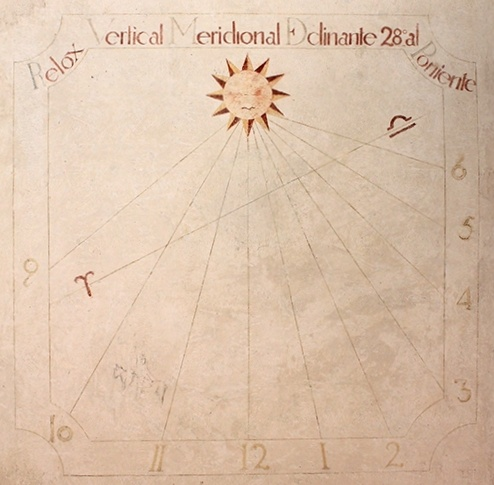 Relox Vertical Meridional Declinante 28º al Poniente
♎
6
5
9
♈
4
3
10
11 12 1 2